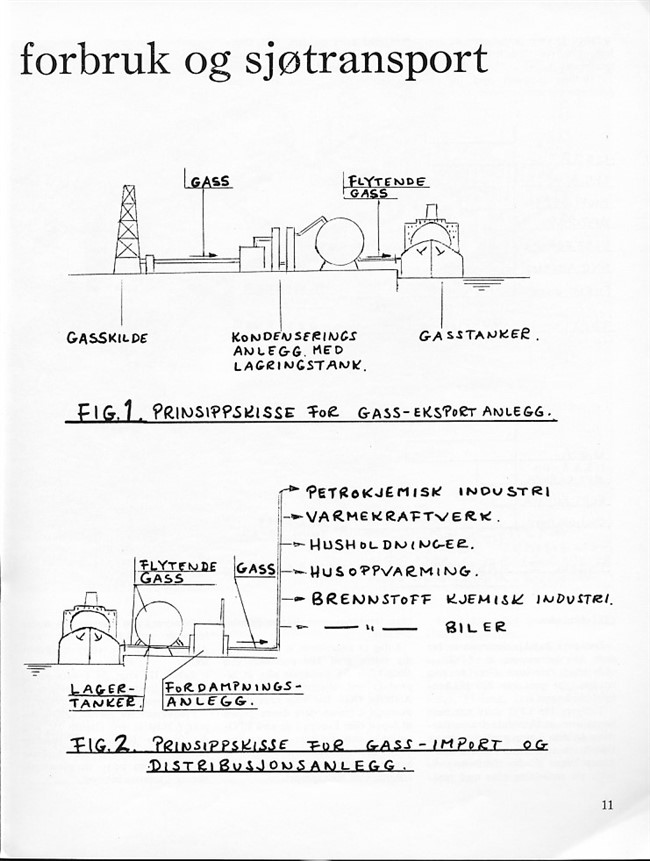 forbruk og sjøtransport
GASS
FLYTENDE
GASS
GASSKILDE
KONDENSERINGS
ANLEGG. MED
LAGRINGSTANK.
GASSTANKER.
FIG.1. PRINSIPPSKISSE FOR GASS-EKSPORT ANLEGG.
PETROKJEMISK INDUSTRI
VARMEKRAFTVERK.
HUSHOLDNINGER.
HUSOPPVARMING.
BRENNSTOFF KJEMISK INDUSTRI.
— " — BILER
FLYTENDE
GASS
GASS
LAGER-
TANKER.
FORDAMPNINGS-
ANLEGG.
FIG.2. PRINSIPPSKISSE FUR GASS-IMPORT OG
DISTRIBUSJONSANLEGG.
11